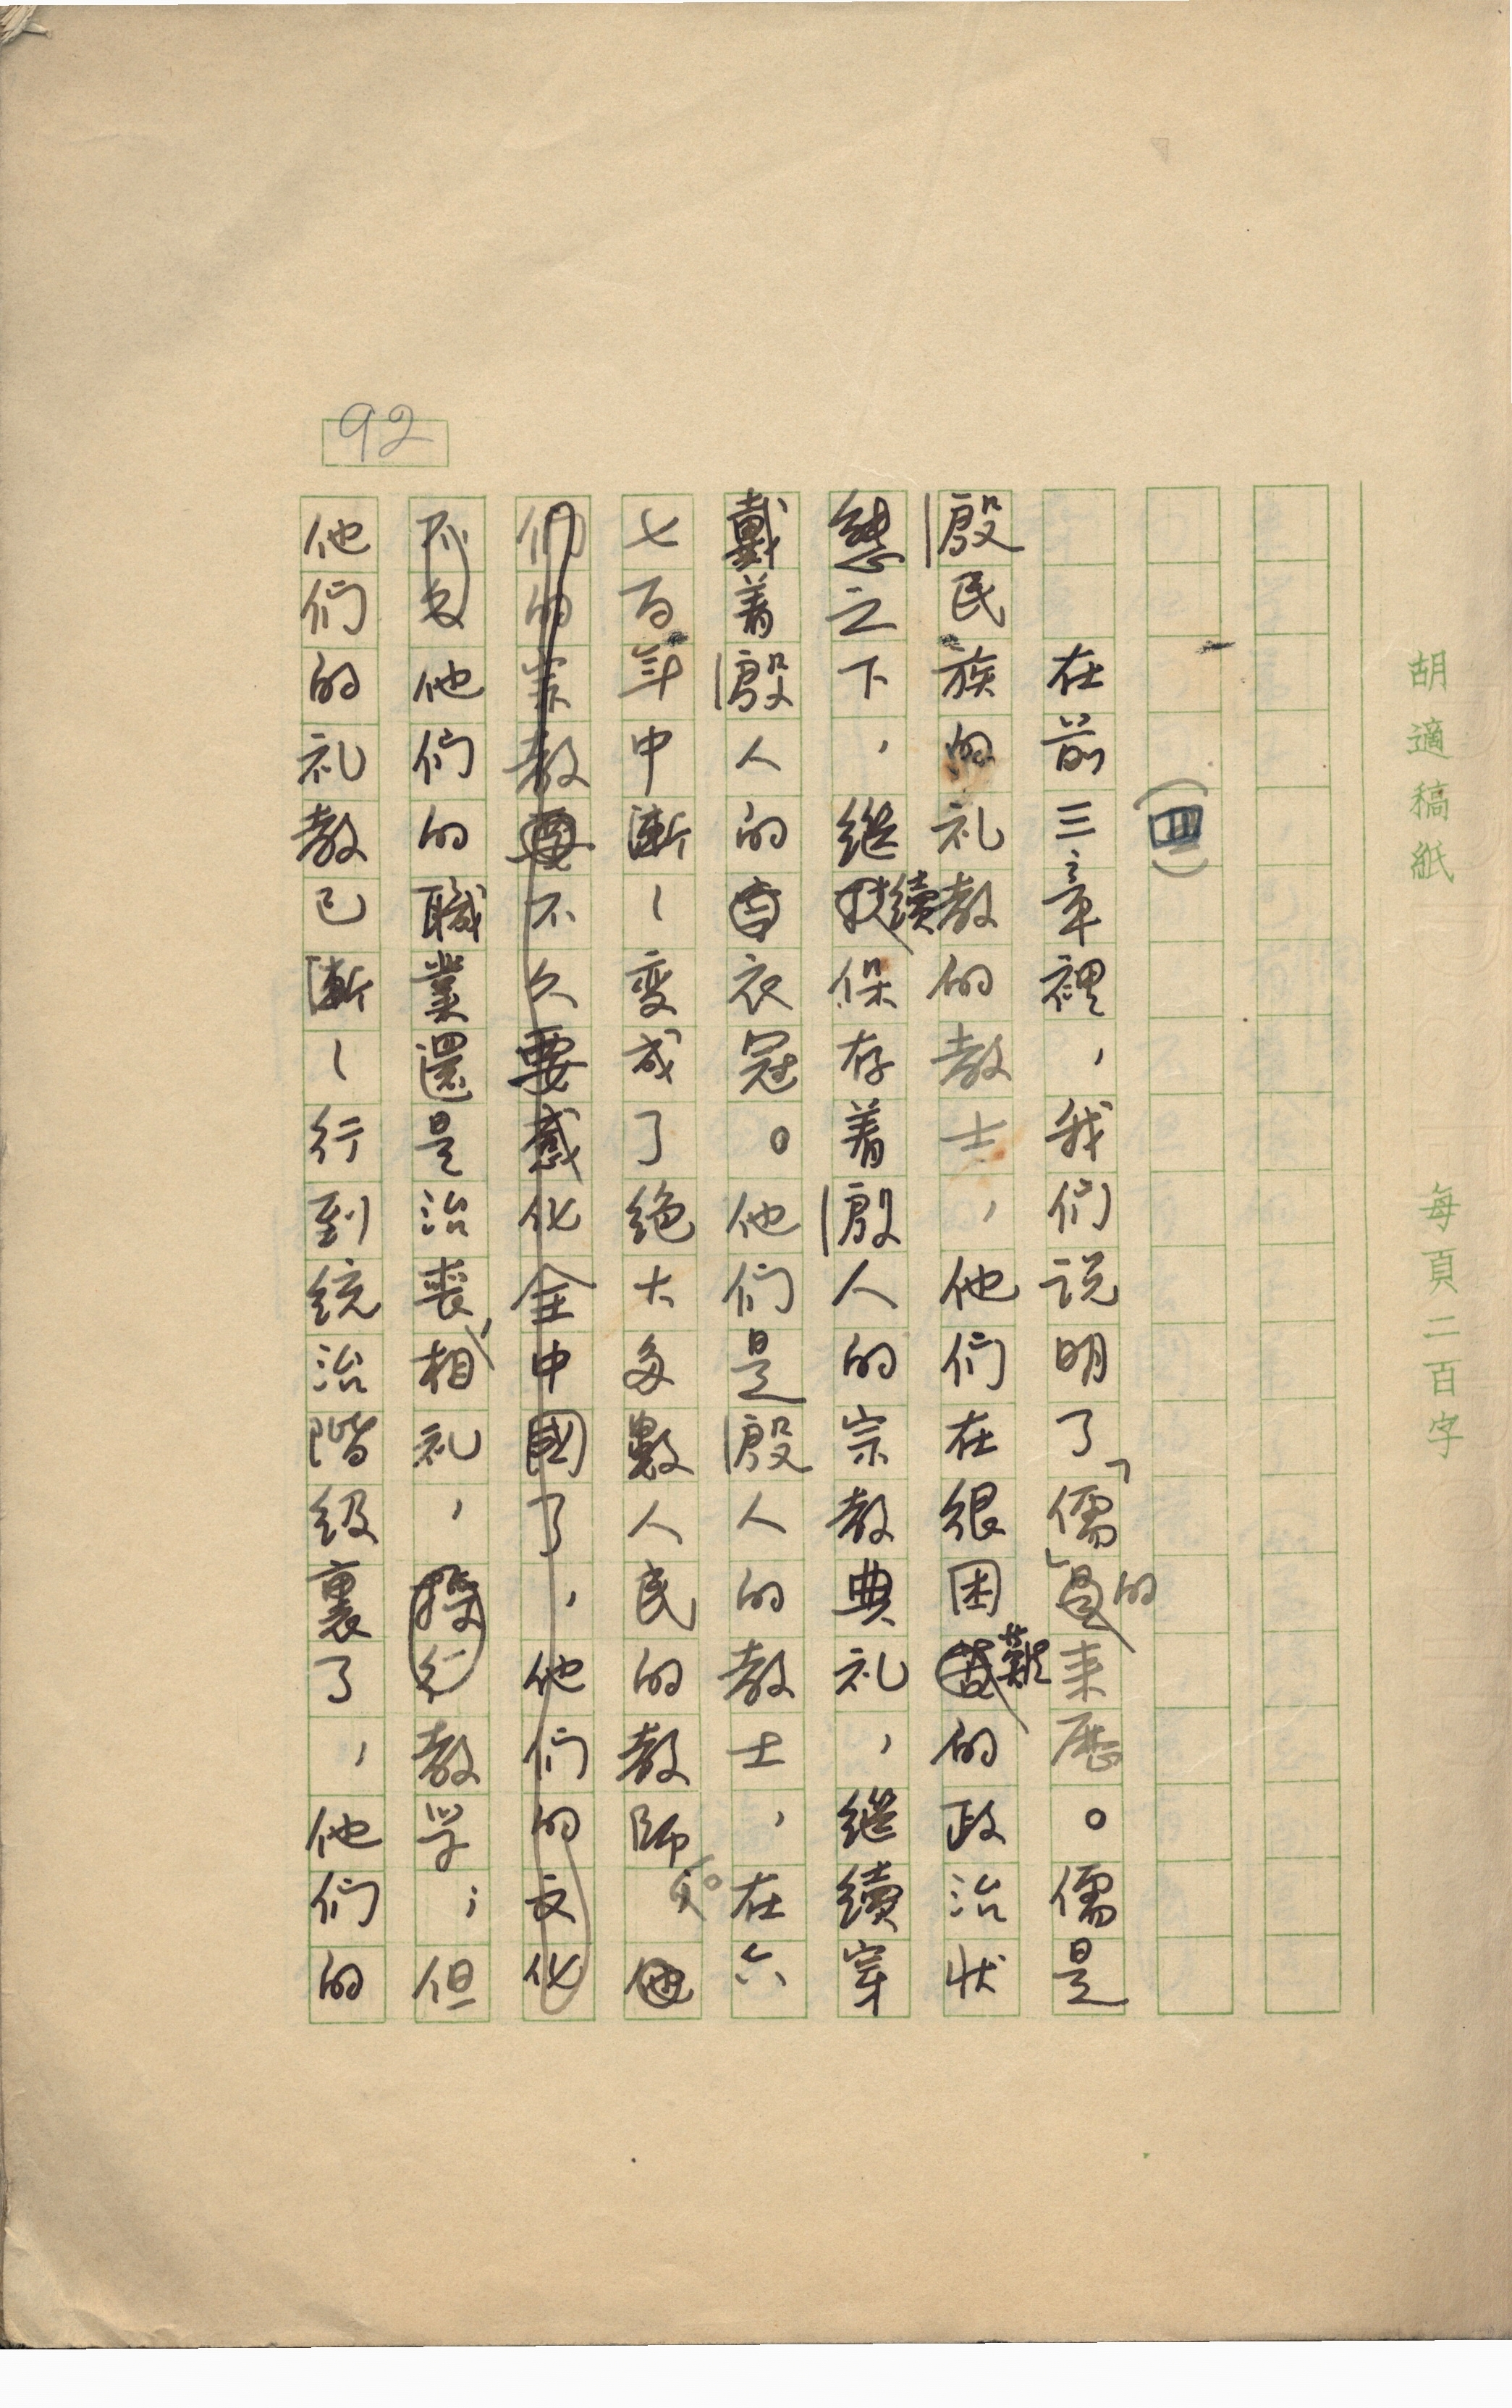 胡適稿紙 每頁二百字
(四)
在前三章裡,我們说明了「儒」的来歷。儒是
殷民族的礼教的教士,他們在很困難的政治狀
態之下,繼續保存着殷人的宗教典礼,繼續穿
戴着殷人的衣冠。他們是殷人的教士,在六
七百年中漸〻变成了绝大多數人民的教師。
們的宗教不久要感化全中國了,他們的文化
他們的職業還是治喪、相礼、教学;但
他們的礼教已漸〻行到统治階级裏了,他們的
92